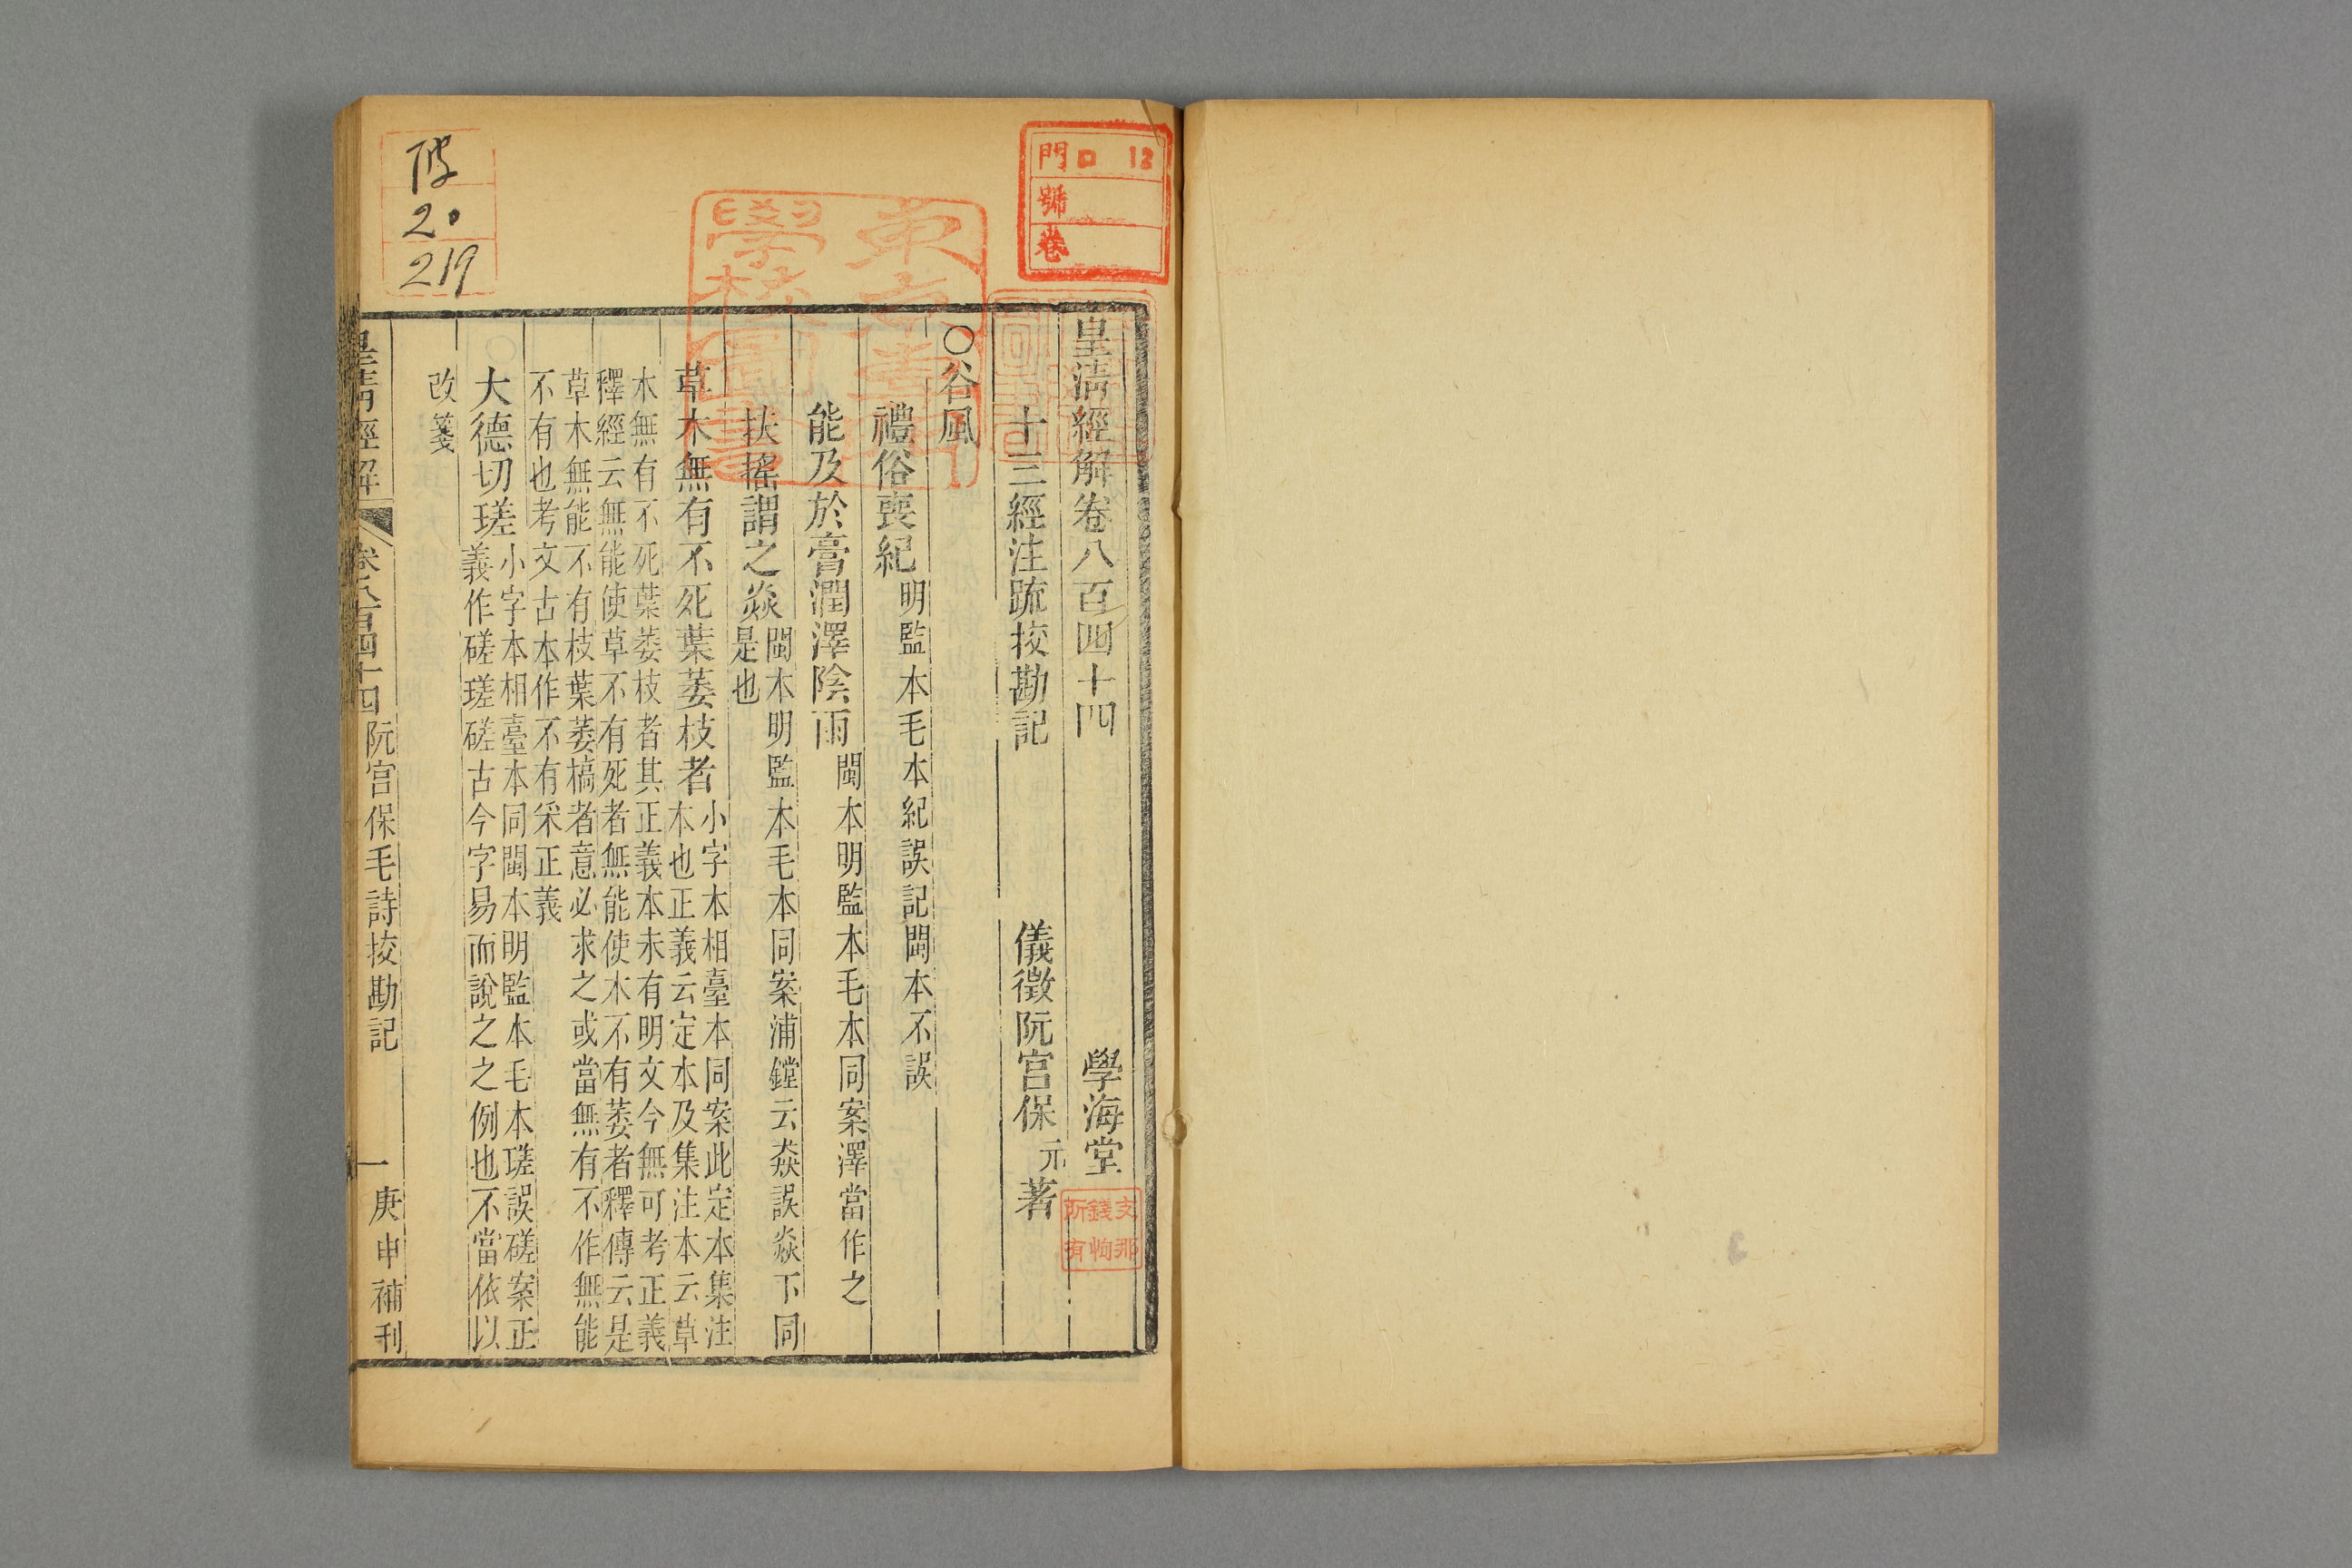 皇清經解卷八百四十四
學海堂
十三經注疏挍勘記
儀徵阮宫保元著
〇谷風
禮俗喪紀明監本毛本紀誤記閩本不誤
能及於膏潤澤陰雨閩本明監本毛本同案澤當作之
扶搖謂之焱閩本明監本毛本同案浦鏜云猋誤焱下同
是也
草木無有不死葉萎枝者小字本相臺本同案此定本集注
本也正義云定本及集注本云草
木無有不死葉萎枝者其正義本未有明文今無可考正義
釋經云無能使草不有死者無能使木不有萎者釋傳云是
草木無能不有枝葉萎槁者意必求之或當無有不作無能
不有也考文古本作不有采正義
大德切瑳小字本相臺本同閩本明監本毛本瑳誤磋案正
義作磋瑳磋古今字易而說之之例也不當依以
改箋
皇清經解
卷八百四十四
阮宫保毛詩挍勘記
一
庚申補刊
門口 12
號
卷
東方文
學校圖書
支那
錢恂
所有
20
219